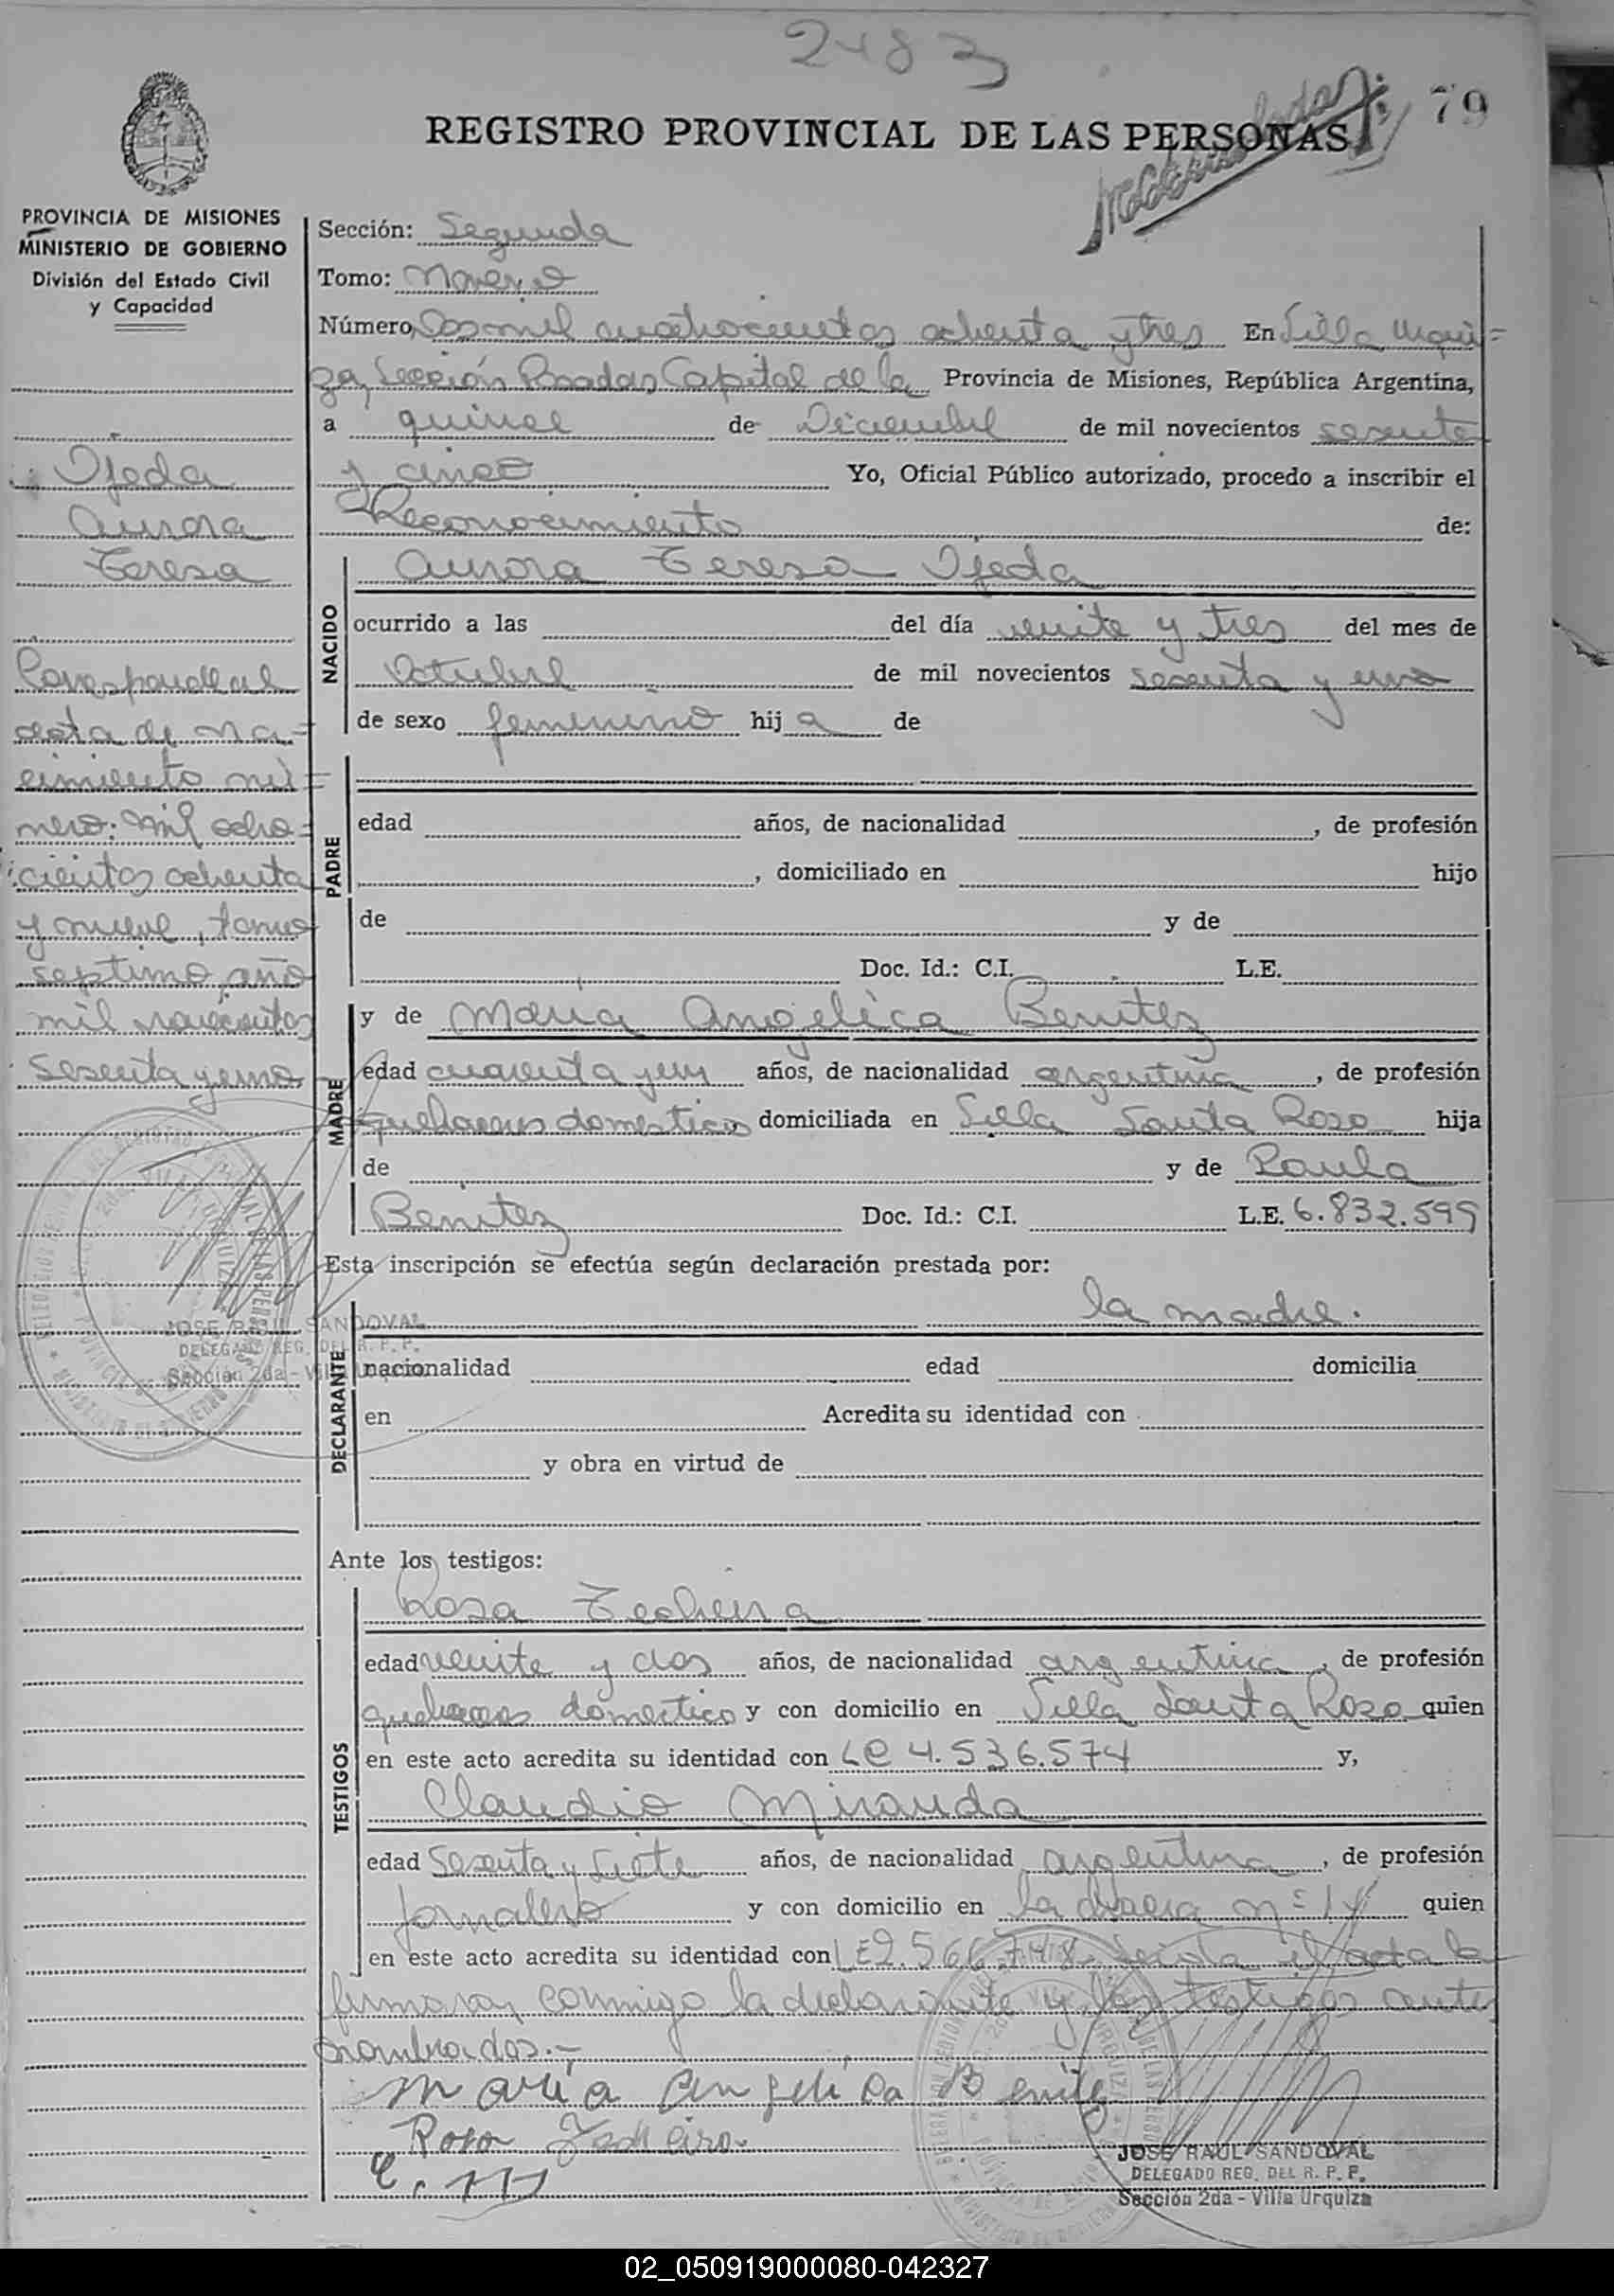 2483
79
REGISTRO PROVINCIAL DE LAS PERSONAS
PROVINCIA DE MISIONES
MINISTERIO DE GOBIERNO
División del Estado Civil
y Capacidad
Ojeda
Aurora
Teresa
Corresponde al
acta de na=
cimiento nú=
mero: mil ocho=
cientos ochenta
y nueve, tomo
septimo año
mil novecientos
sesenta y uno
Sección: Segunda
Tomo: Noveno
Número, Dos mil cuatrocientos ochenta y tres En Villa Urqui=
za, Sección Posadas Capital de la Provincia de Misiones, República Argentina,
a quince de Diciembre de mil novecientos sesenta
y cinco Yo, Oficial Público autorizado, procedo a inscribir el
Reconocimiento de:
NACIDO
Aurora Teresa Ojeda
ocurrido a las del día veinte y tres del mes de
Octubre de mil novecientos sesenta y uno
de sexo femenino hija de
PADRE
edad años, de nacionalidad , de profesión
, domiciliado en hijo
de y de
Doc. Id.: C.I. L.E.
MADRE
y de Maria Angélica Benitez
edad cuarenta y un años, de nacionalidad argentina, de profesión
quehaceres domesticos domiciliada en Villa Santa Rosa hija
de y de Paula
Benitez Doc. Id.: C.I. L.E. 6.832.599
Esta inscripción se efectúa según declaración prestada por:
la madre.
JOSE RAUL SANDOVAL
DELEGADO REG. DEL R. P. P.
Sección 2da - Villa Urquiza
DECLARANTE
nacionalidad edad domicilia
en Acredita su identidad con
y obra en virtud de
Ante los testigos:
TESTIGOS
Rosa Techeira
edad veinte y dos años, de nacionalidad argentina, de profesión
quehaceres domestico y con domicilio en Villa Santa Rosa quien
en este acto acredita su identidad con LE 4.536.574 y,
Claudio Miranda
edad Sesenta y Siete años, de nacionalidad argentina, de profesión
Jornalero y con domicilio en la chacra nº 14 quien
en este acto acredita su identidad con LE 2.566.748. Leida el acta la
firmaron conmigo la declarante y los testigos ante
nombrados.-
Maria Angelica Benite
Rosa Techeira
C. M
JOSE RAUL SANDOVAL
DELEGADO REG. DEL R. P. P.
Sección 2da - Villa Urquiza
02_050919000080-042327